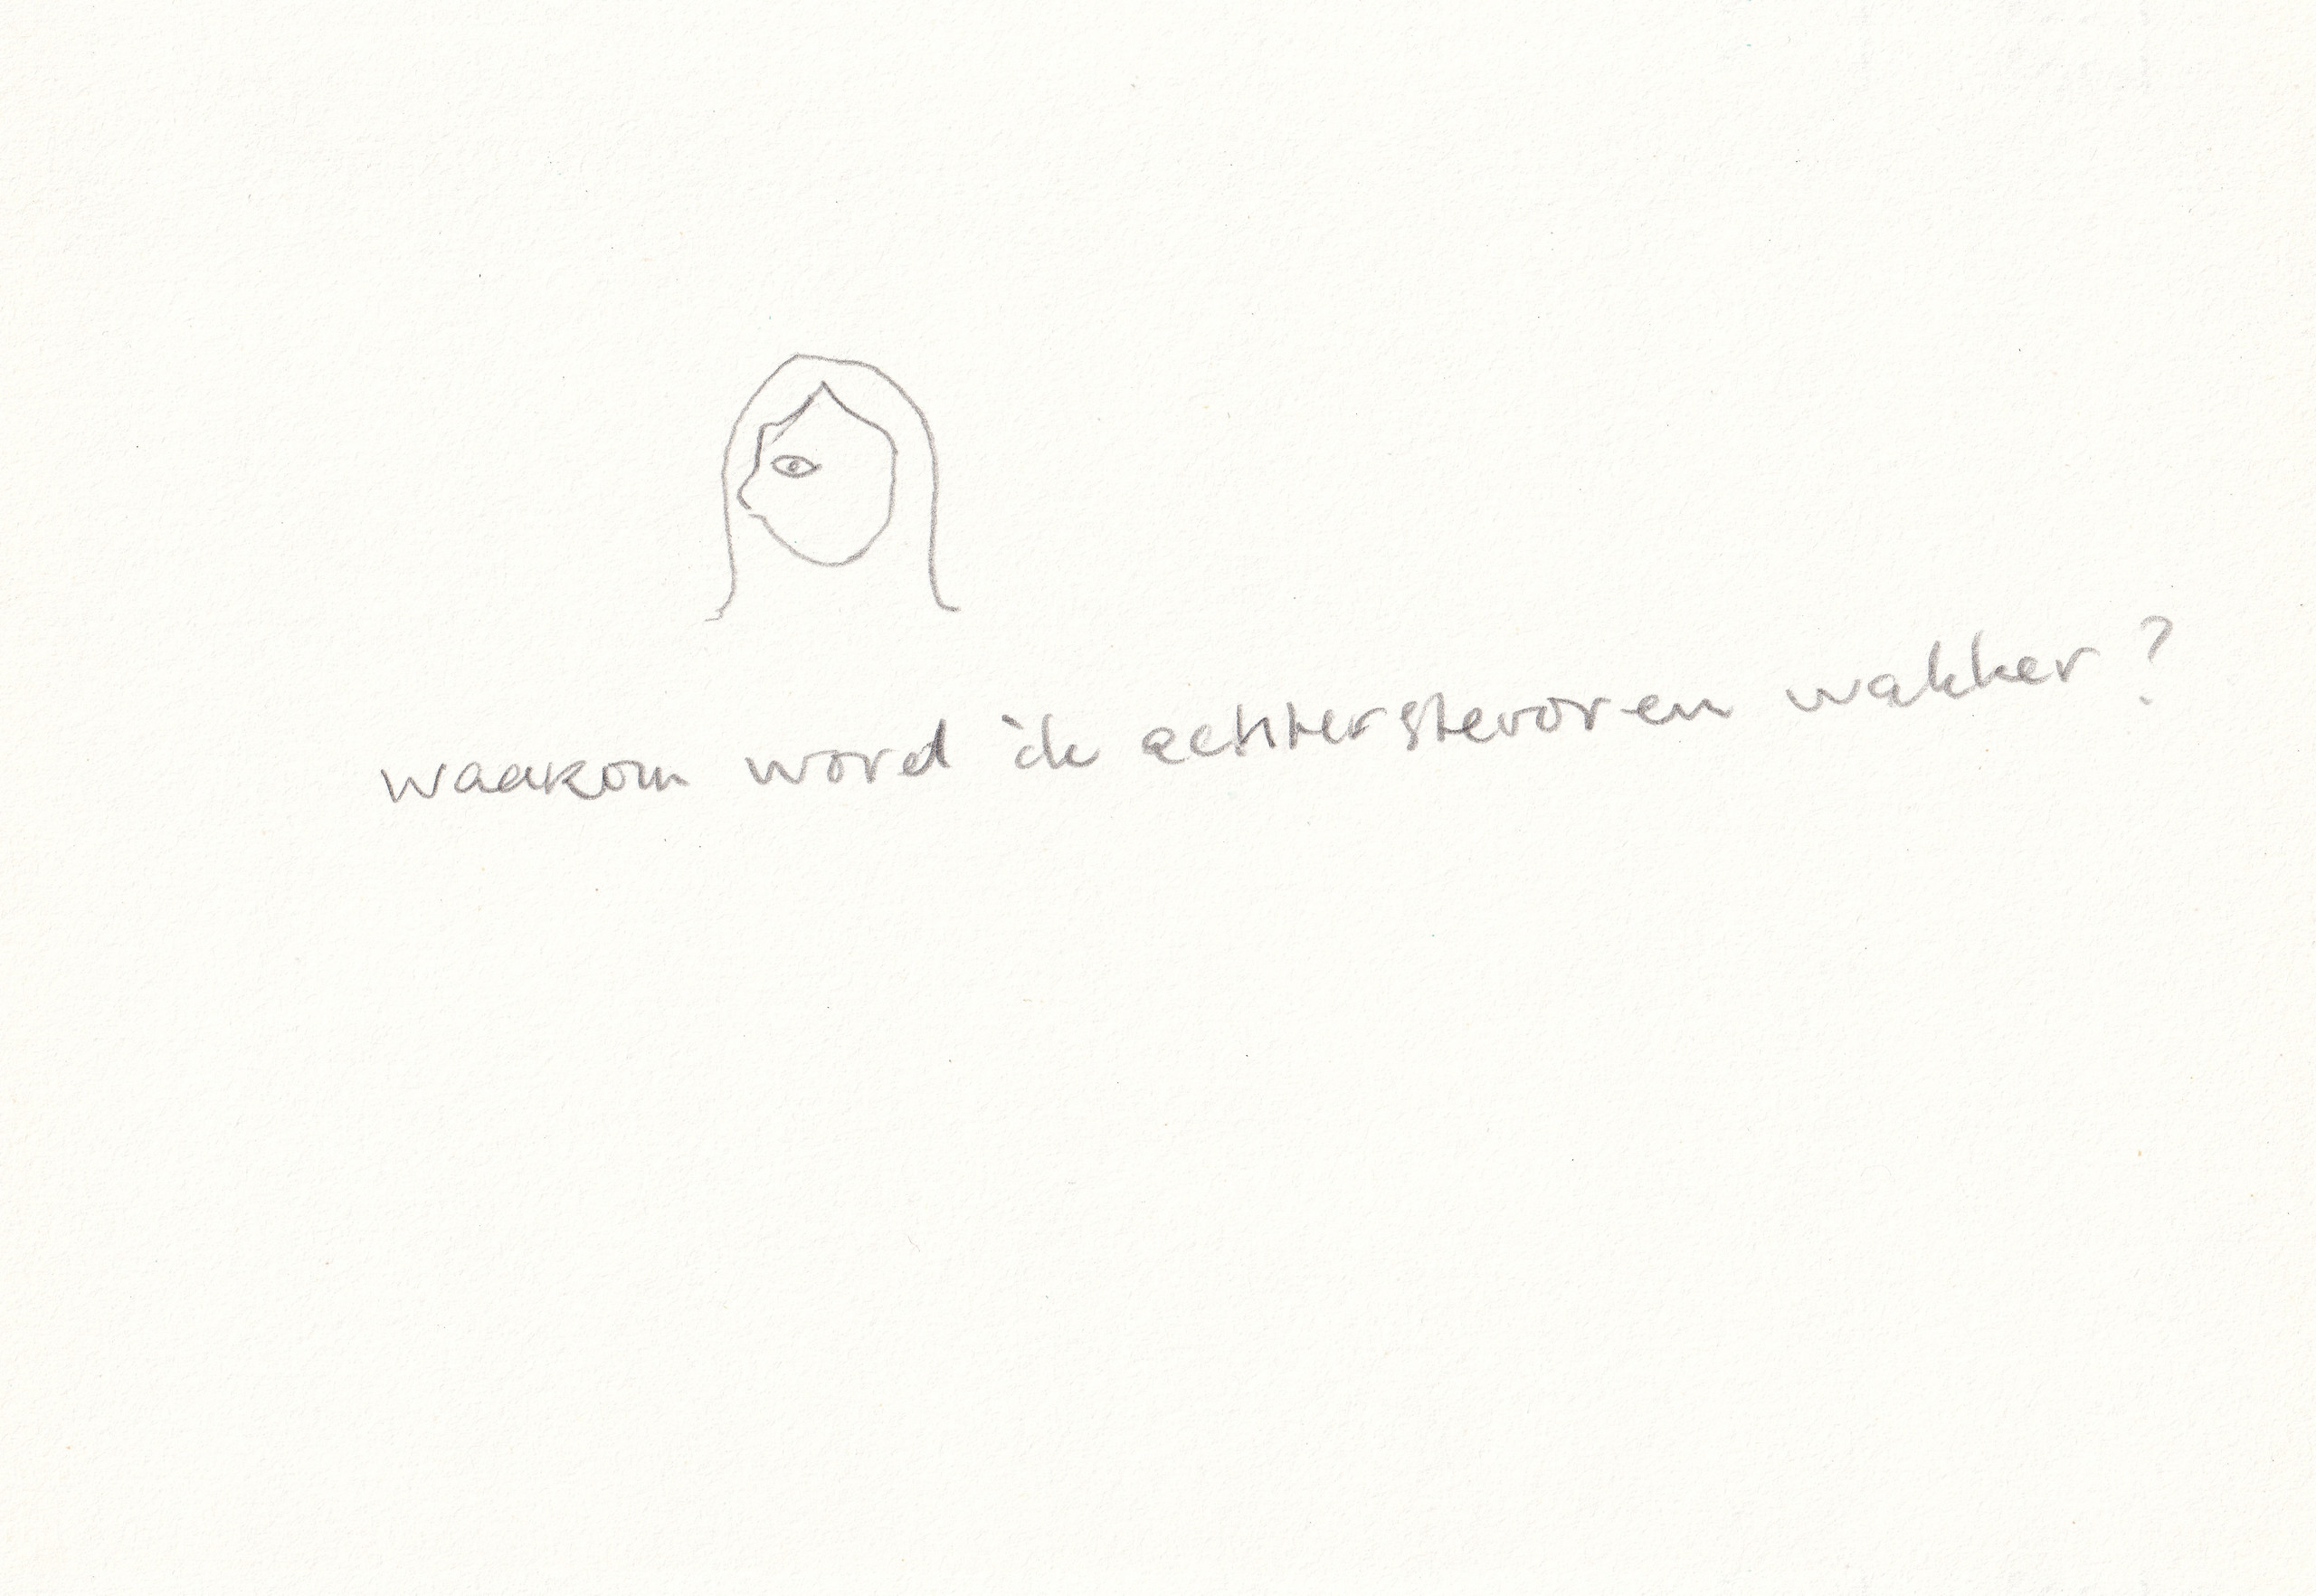 waakom word ik achterstevoren wakker?